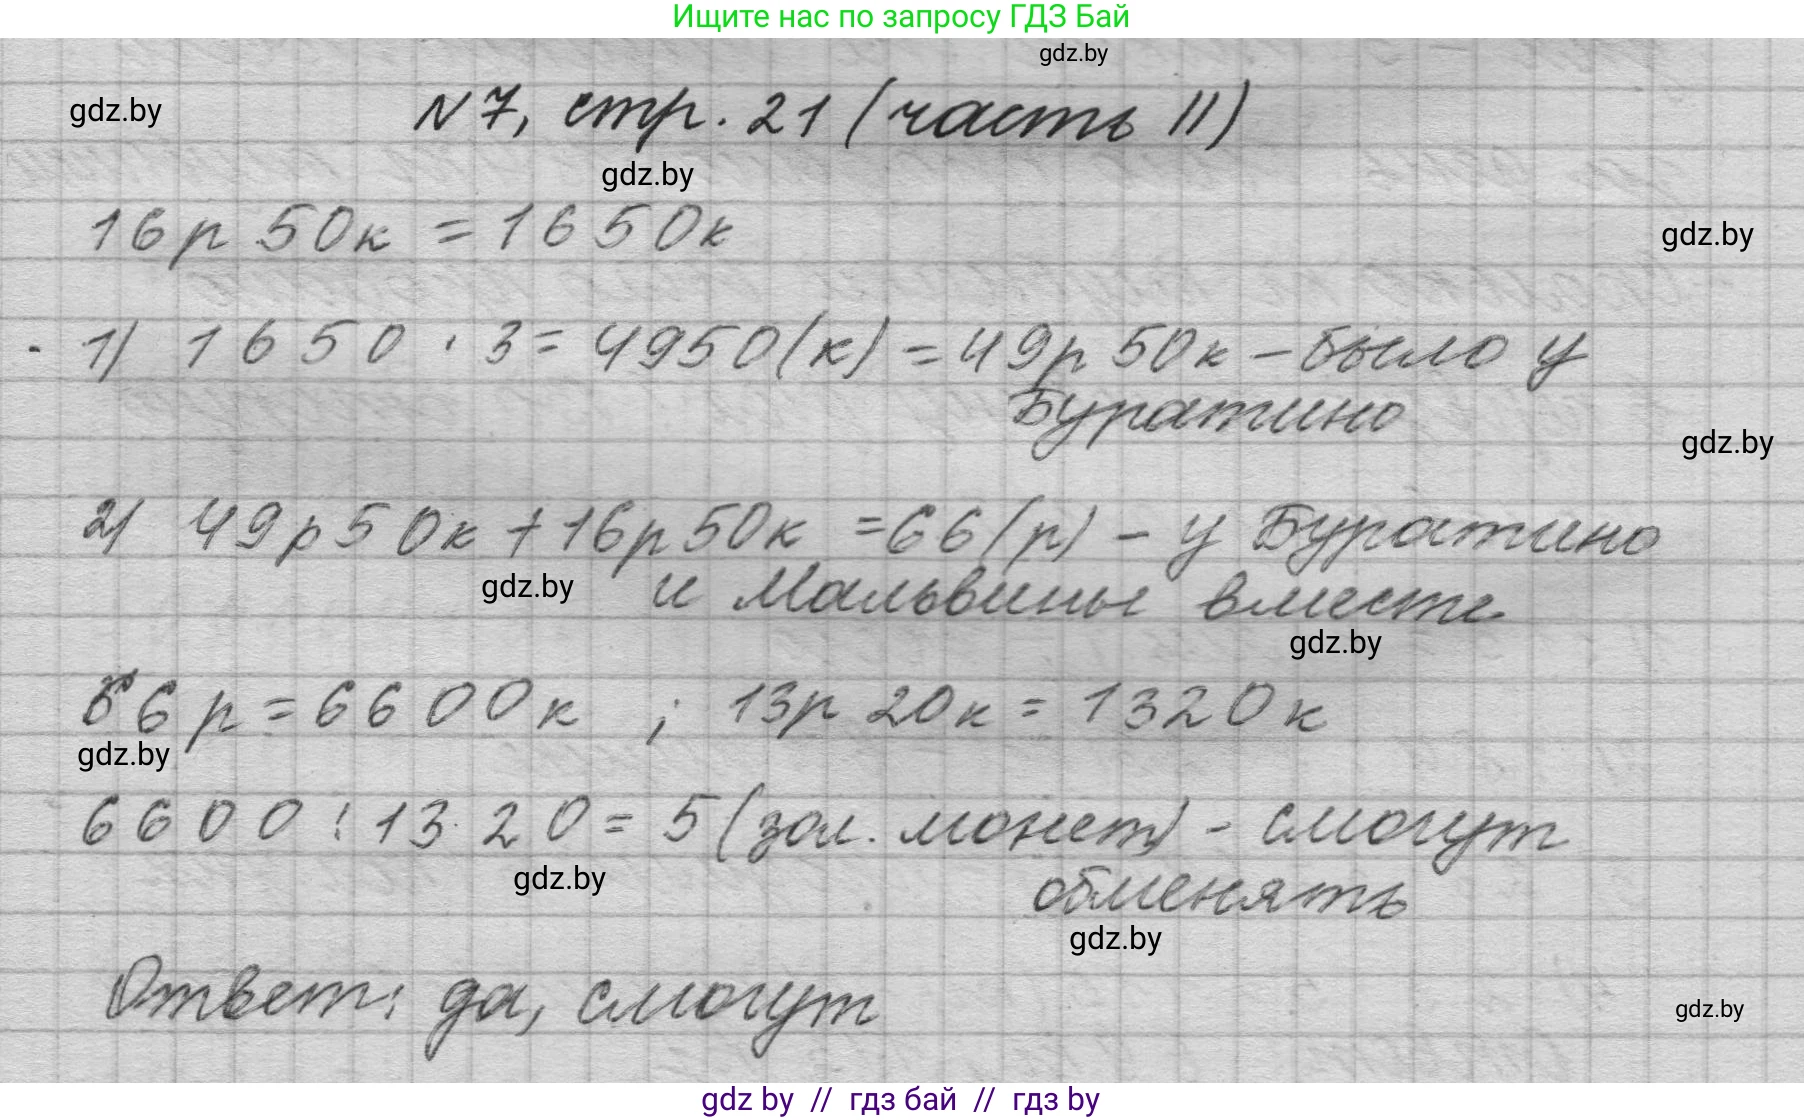 Ищите нас по запросу ГДЗ Бай
gdz.by
gdz.by
N 7, стр. 21 (часть II)
gdz.by
16 р 50 к = 1650 к
gdz.by
1) 1650 · 3 = 4950 (к) = 49 р 50 к - было у
Буратино
gdz.by
2) 49 р 50 к + 16 р 50 к = 66 (р) - у Буратино
gdz.by
и Мальвины вместе
gdz.by
66 р = 6600 к ; 13 р 20 к = 1320 к
gdz.by
6600 : 1320 = 5 (зол. монет) - смогут
gdz.by
обменять
gdz.by
Ответ: да, смогут
gdz.by
gdz by // гдз бай // гдз by